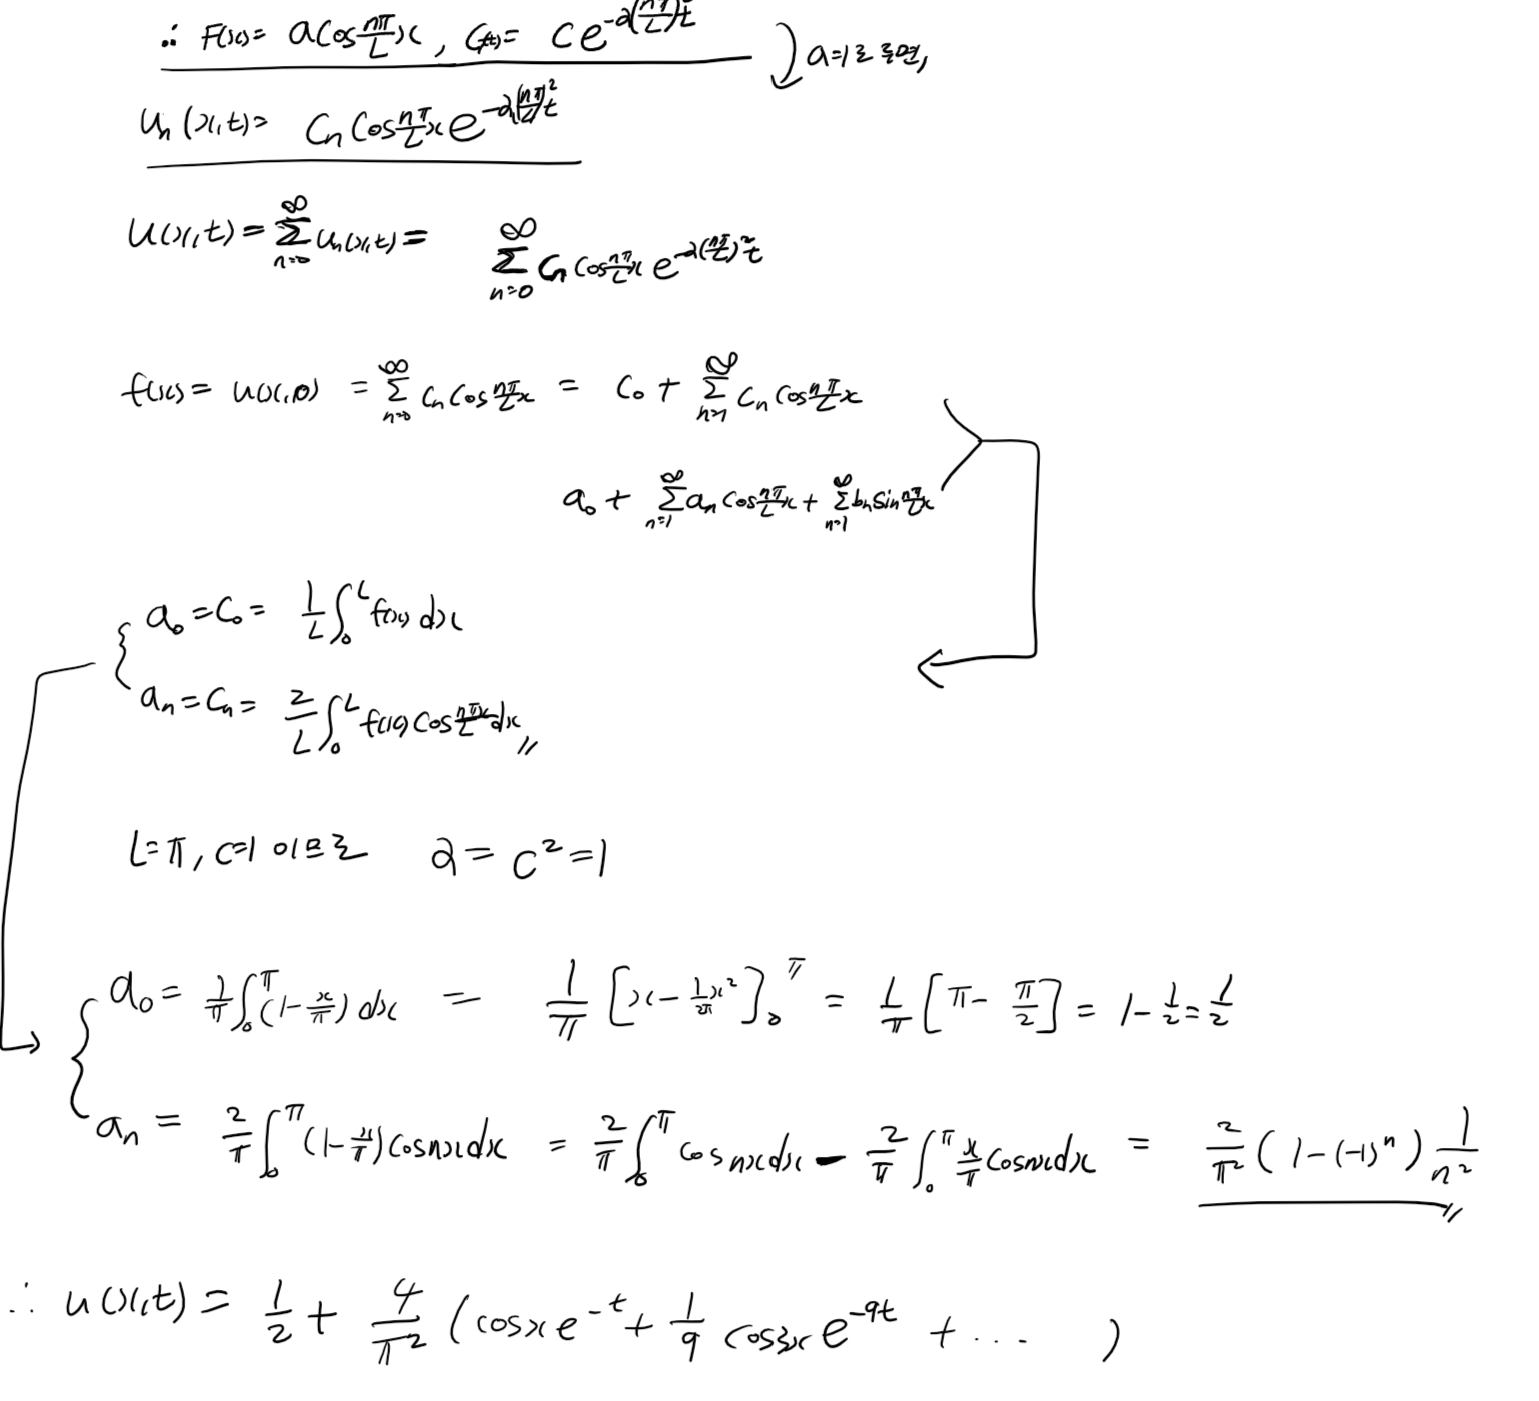 ∴ F(x) = a cos nπ/L x , G(t) = C e^{-α(nπ/L)²t} a=1로 두면,
u_n(x,t) = C_n cos nπ/L x e^{-α(nπ/L)²t}
u(x,t) = Σ_{n=0}^{∞} u_n(x,t) = Σ_{n=0}^{∞} C_n cos nπ/L x e^{-α(nπ/L)²t}
f(x) = u(x,0) = Σ_{n=0}^{∞} C_n cos nπ/L x = C_0 + Σ_{n=1}^{∞} C_n cos nπ/L x
a_0 + Σ_{n=1}^{∞} a_n cos nπ/L x + Σ_{n=1}^{∞} b_n sin nπ/L x
a_0 = C_0 = 1/L ∫_0^L f(x) dx
a_n = C_n = 2/L ∫_0^L f(x) cos nπx/L dx //
L=π, c=1 이므로 α = c² = 1
a_0 = 1/π ∫_0^π (1 - x/π) dx = 1/π [x - 1/2π x²]_0^π = 1/π [π - π/2] = 1 - 1/2 = 1/2
a_n = 2/π ∫_0^π (1 - x/π) cos nx dx = 2/π ∫_0^π cos nx dx - 2/π ∫_0^π x/π cos nx dx = 2/π² (1 - (-1)^n) 1/n² //
∴ u(x,t) = 1/2 + 4/π² (cos x e^{-t} + 1/9 cos 3x e^{-9t} + ... )